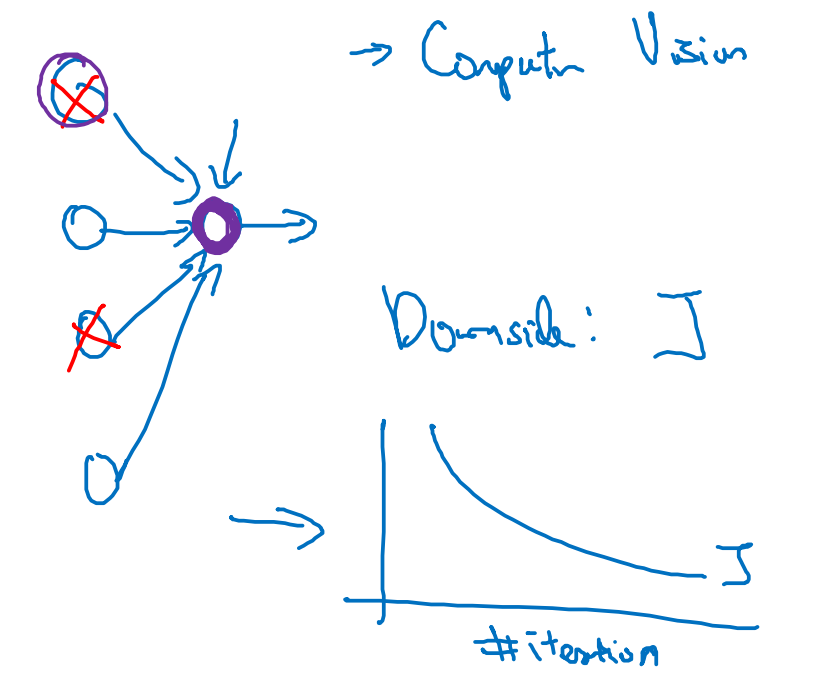 → Computer Vision
Downside: J
J
#iteration